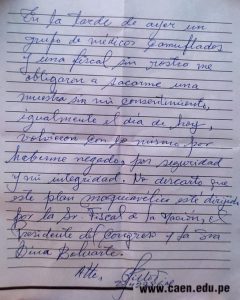 En la tarde de ayer un
grupo de médicos camuflados
y una fiscal sin rostro me
obligaron a sacarme una
muestra sin mi consentimiento,
igualmente el día de hoy,
volvieron con lo mismo por
haberme negado por seguridad
y mi integridad. No descarto que
este plan maquiavélico este dirigido
por la Sr. Fiscal de la Nación, el
Presidente del Congreso y la Sra
Dina Boluarte.
Atte.
www.caen.edu.pe